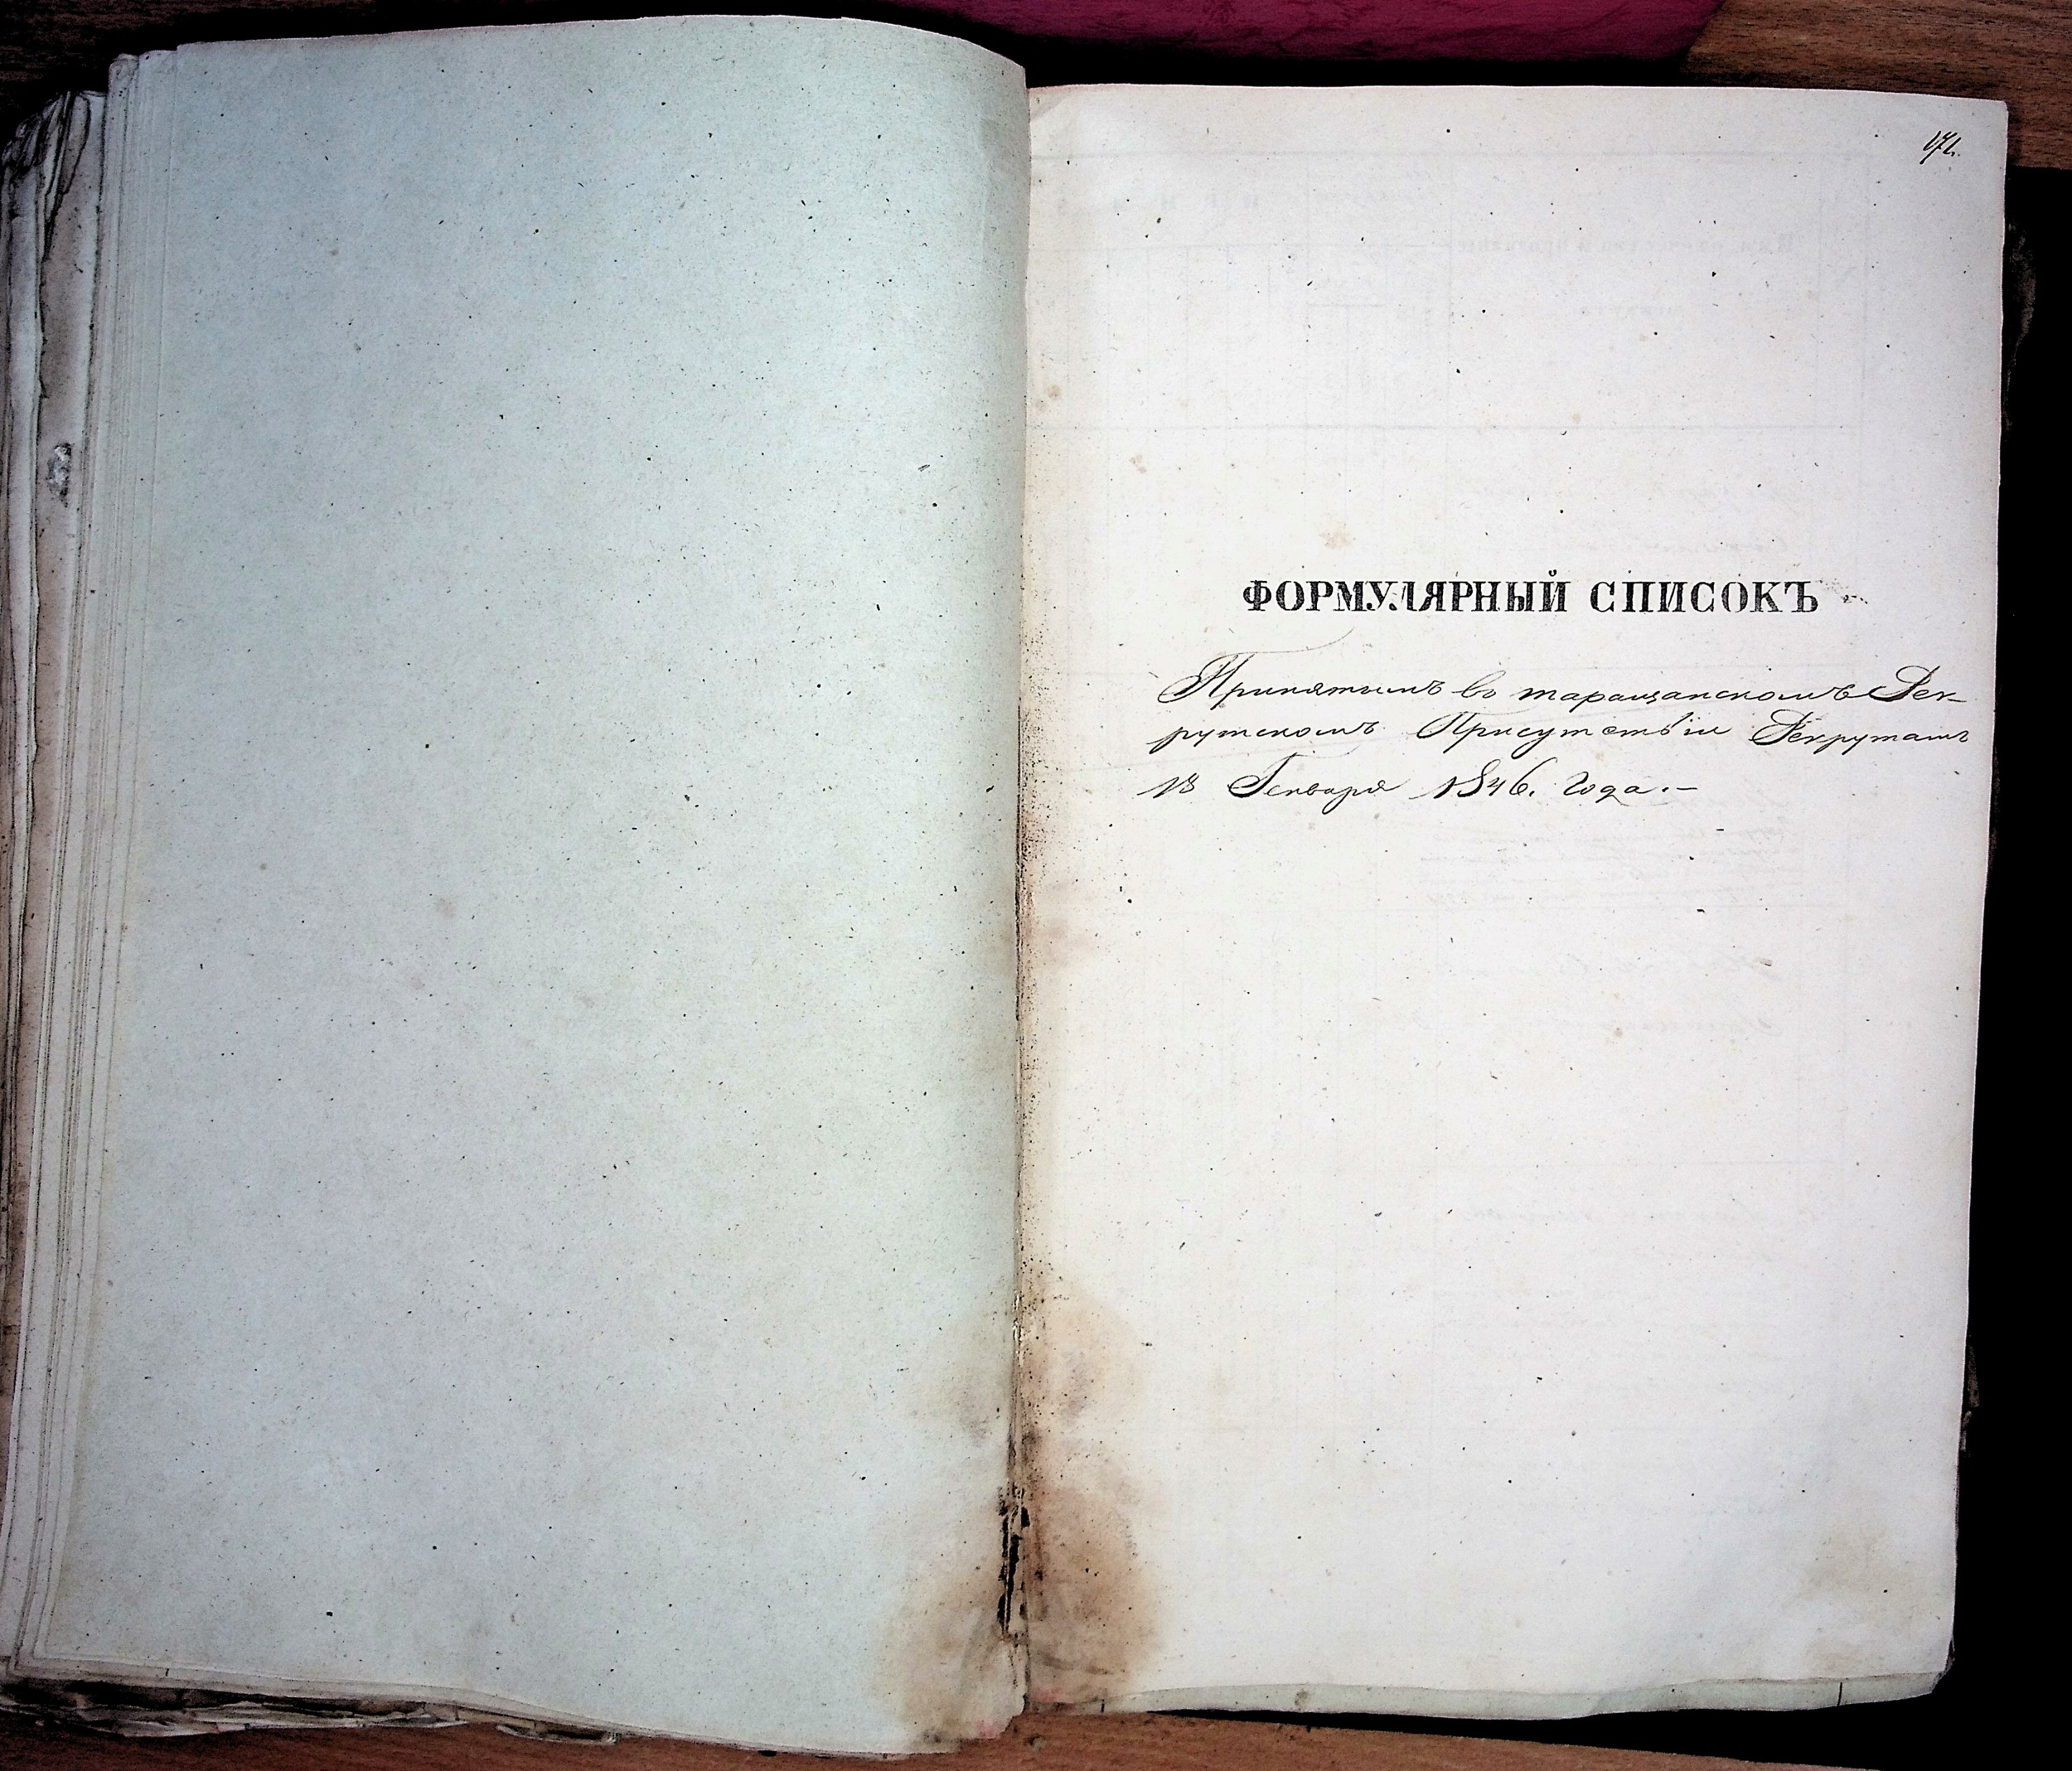 171.
ФОРМУЛЯРНЫЙ СПИСОКЪ
Принятымъ въ таращанскомъ Рек-
рутскомъ Присутствіи Рекрутамъ
13 Генваря 1846. года.-